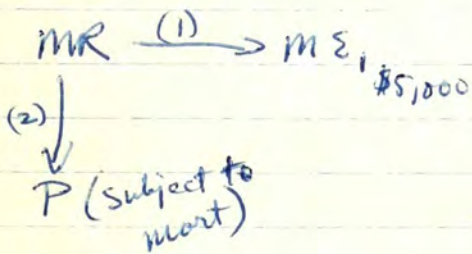 MR (1) ME, $5,000
(2)
P (subject to
mort)